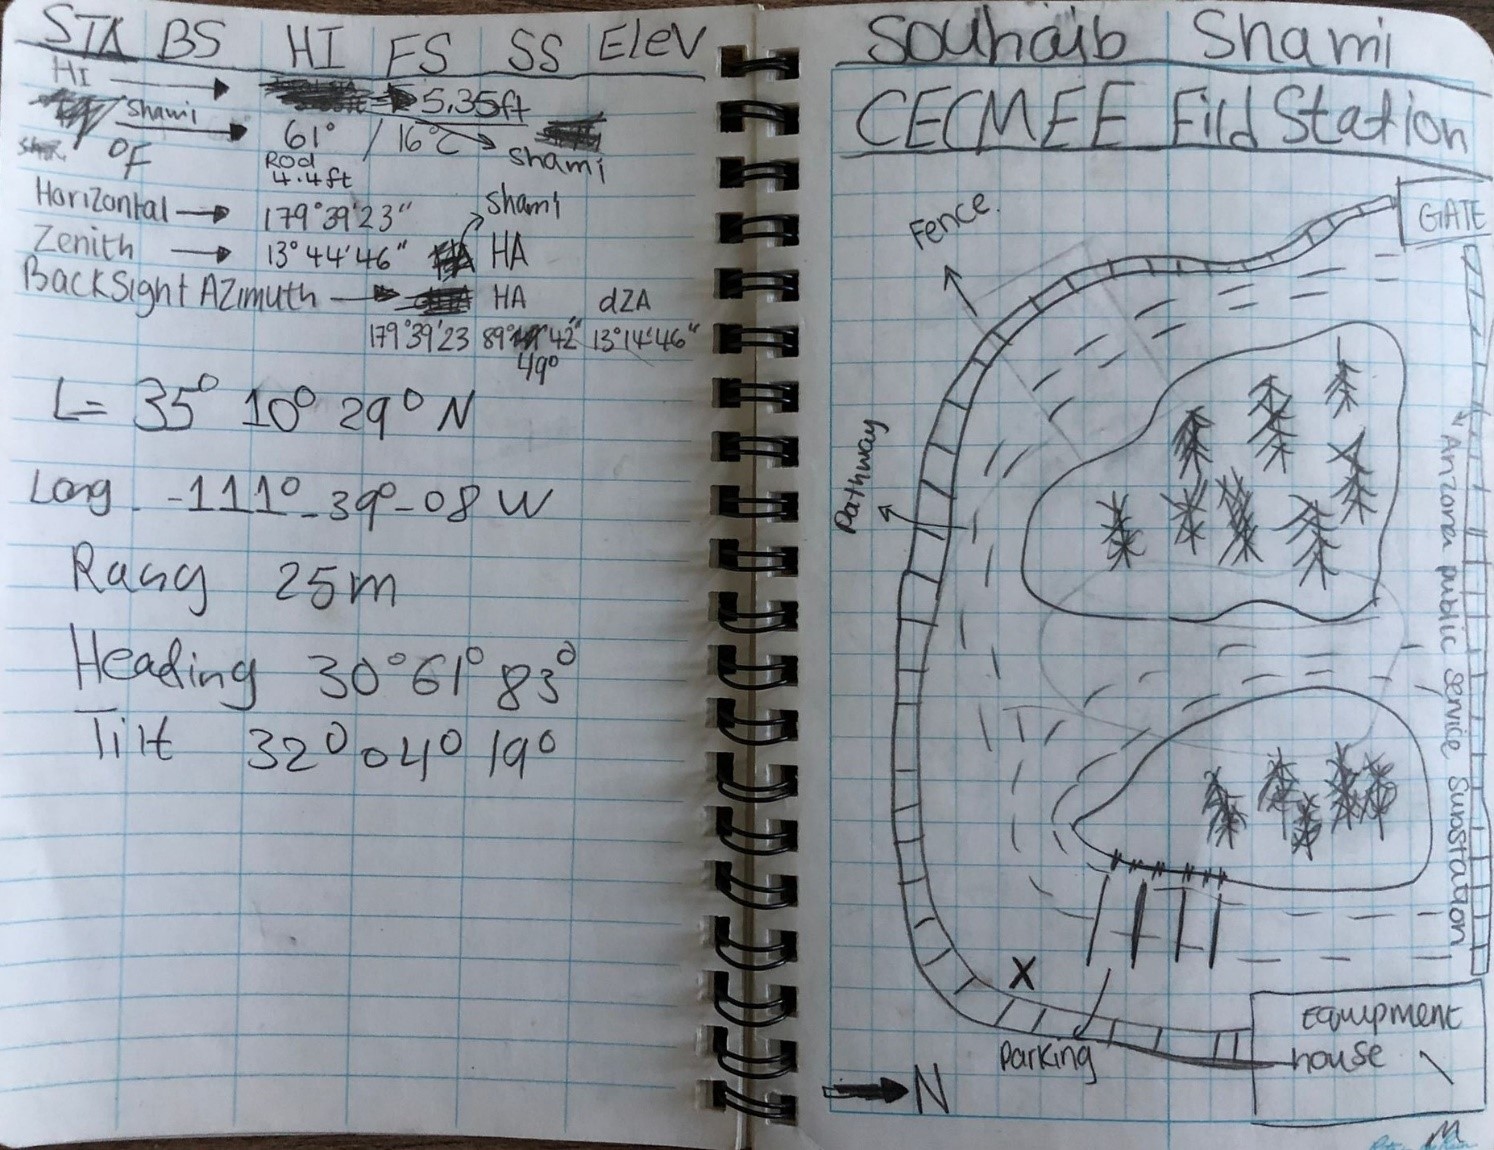 STA BS HI FS SS Elev
HI → 5.35ft
Shami → 61° / 16°C → Shami
°F Rod
4.4ft
Horizontal → 179°39'23" Shami
Zenith → 13°44'46" HA
BackSight AZimuth → HA dZA
179°39'23 89° 42" 13°14'46"
49°
L= 35° 10° 29° N
Long -111° - 39° - 08 W
Rang 25m
Heading 30° 61° 83°
Tilt 32° 04° 19°
Souhaib Shami
CECMEE Fild Station
GATE
Fence.
Pathway
Arizona public service Sunstation
X
Parking
Equipment
house
N